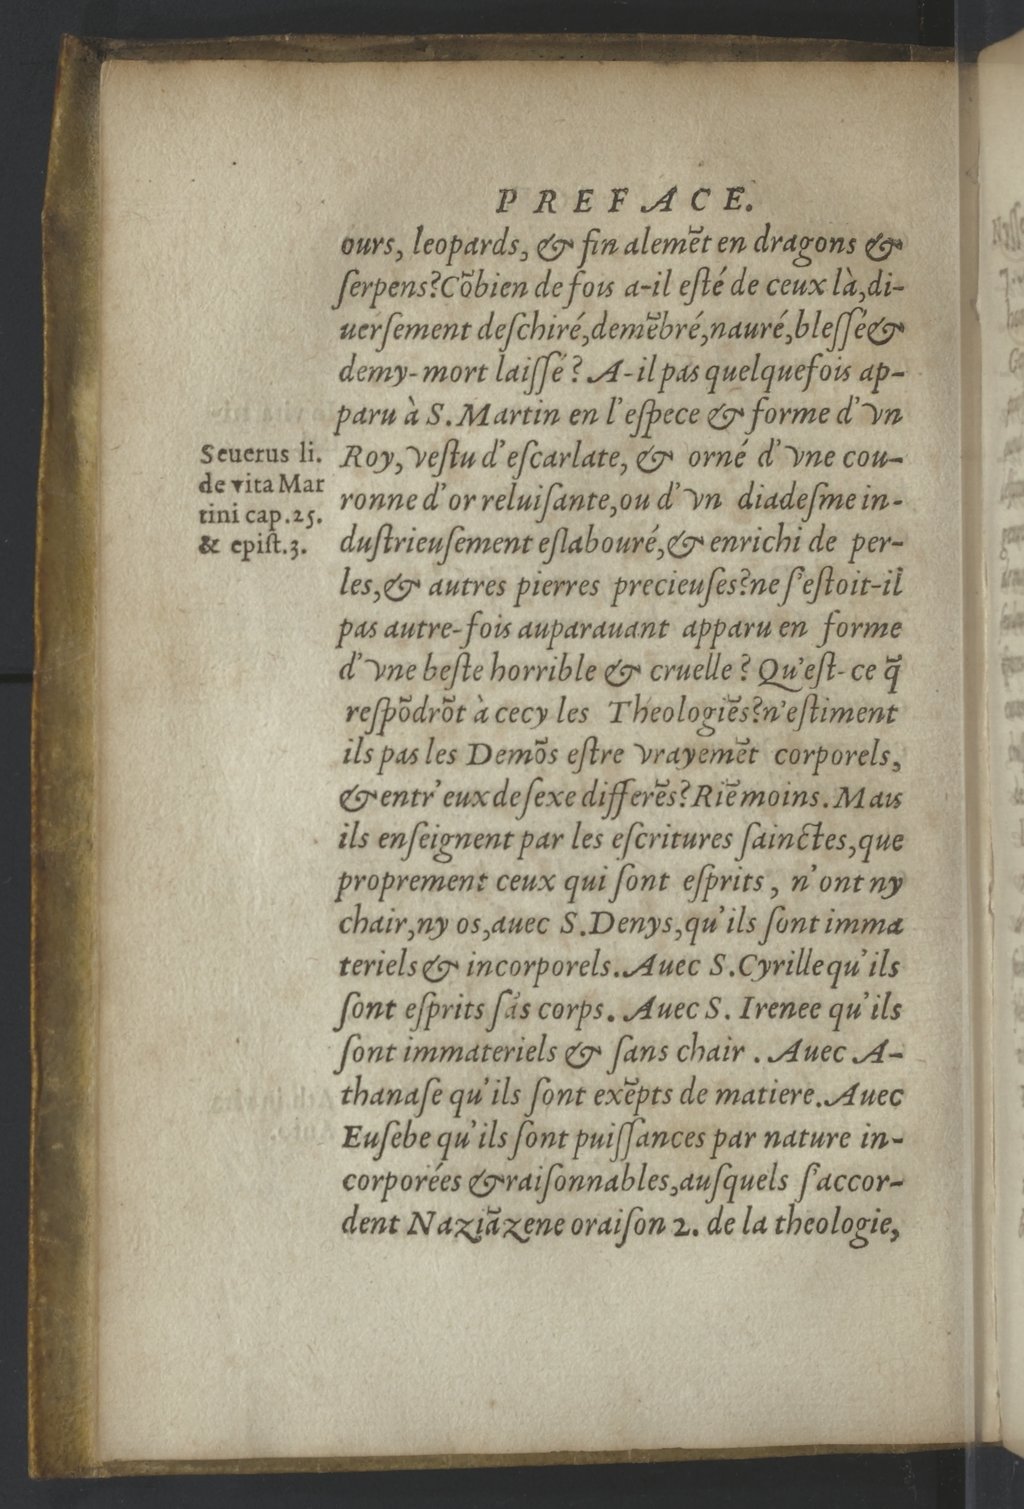 PREFACE.
ours, leopards, & fin alemēt en dragons &
ſerpens?Cōbien de fois a-il eſté de ceux là,di-
uerſement deſchiré,demēbré,nauré,bleſſé&
demy-mort laiſſé? A-il pas quelquefois ap-
paru à S.Martin en l'eſpece & forme d'vn
Roy,veſtu d'eſcarlate, & orné d'vne cou-
ronne d'or reluiſante,ou d'vn diadeſme in-
duſtrieuſement eſlabouré,& enrichi de per-
les,& autres pierres precieuſes?ne ſ'eſtoit-il
pas autre-fois auparauant apparu en forme
d'vne beſte horrible & cruelle? Qu'eſt-ce q̄
reſpōdrōt à cecy les Theologiēs?n'eſtiment
ils pas les Demōs eſtre vrayemēt corporels,
& entr'eux de ſexe differēs?Riē moins. Mais
ils enſeignent par les eſcritures ſainctes,que
proprement ceux qui ſont eſprits, n'ont ny
chair,ny os,auec S.Denys,qu'ils ſont imma
teriels & incorporels. Auec S.Cyrille qu'ils
ſont eſprits ſās corps. Auec S. Irenee qu'ils
ſont immateriels & ſans chair. Auec A-
thanaſe qu'ils ſont exēpts de matiere. Auec
Euſebe qu'ils ſont puiſſances par nature in-
corporées & raiſonnables,auſquels ſ'accor-
dent Naziāzene oraiſon 2. de la theologie,
Seuerus li.
de vita Mar
tini cap.25.
& epiſt.3.